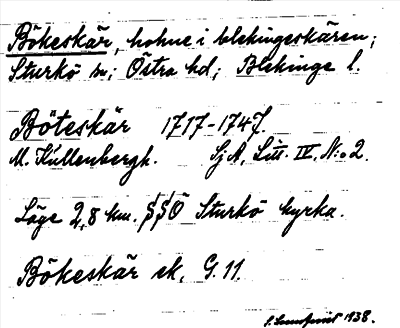 Bökeskär, holme i blekingeskären;
Sturkö sn; Östra hd; Blekinge l.
Böteskär 1717-1747.
M. Kullenbergh. SjA, Litt. IV. N:o 2.
Läge 2,8 km. SSÖ Sturkö kyrka.
Bökeskär ek. G. 11.
1938.